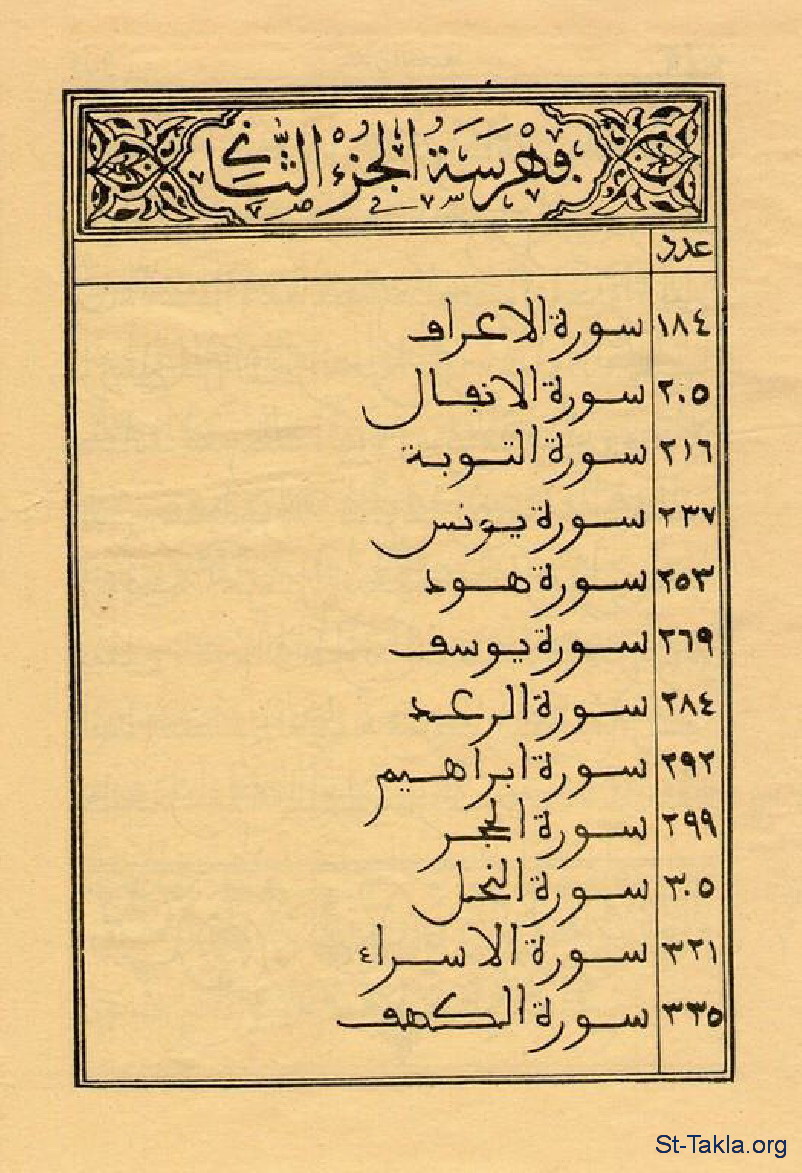 فهرسة الجزء الثاني
عدد
١٨٤ سورة الاعراف
٢٠٥ سورة الانفال
٢١٦ سورة التوبة
٢٣٧ سورة يونس
٢٥٣ سورة هود
٢٦٩ سورة يوسف
٢٨٤ سورة الرعد
٢٩٢ سورة ابراهيم
٢٩٩ سورة الحجر
٣٠٥ سورة النحل
٣٢١ سورة الاسراء
٣٣٥ سورة الكهف
St-Takla.org